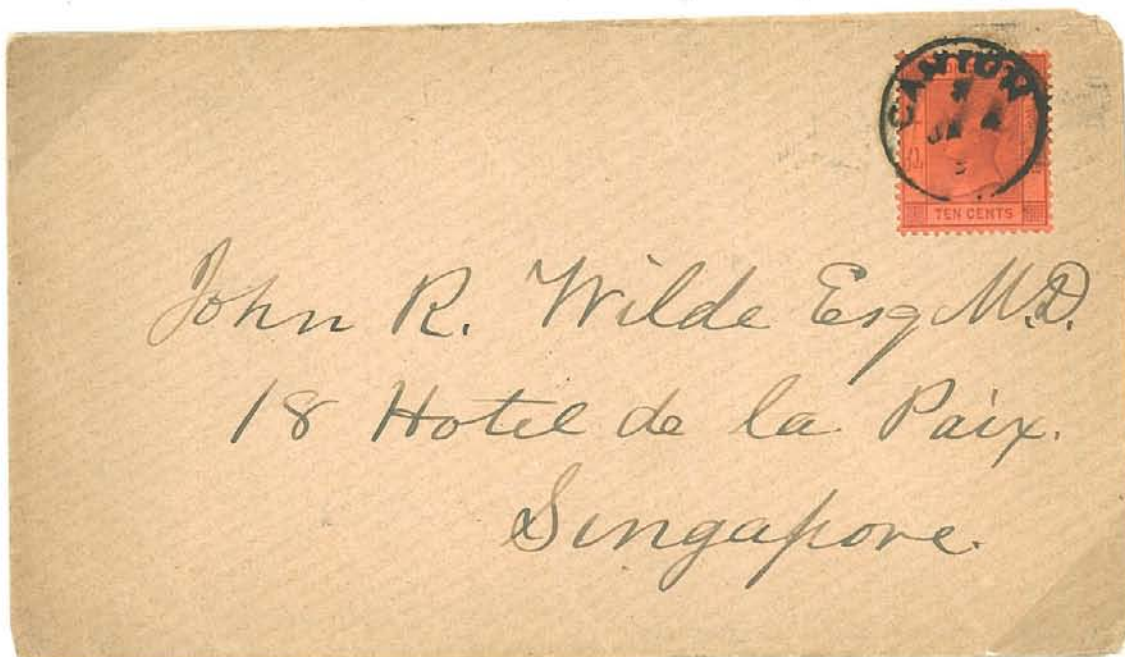 CANTON
TEN CENTS
John R. Wilde Esq M.D.
18 Hotel de la Paix.
Singapore.